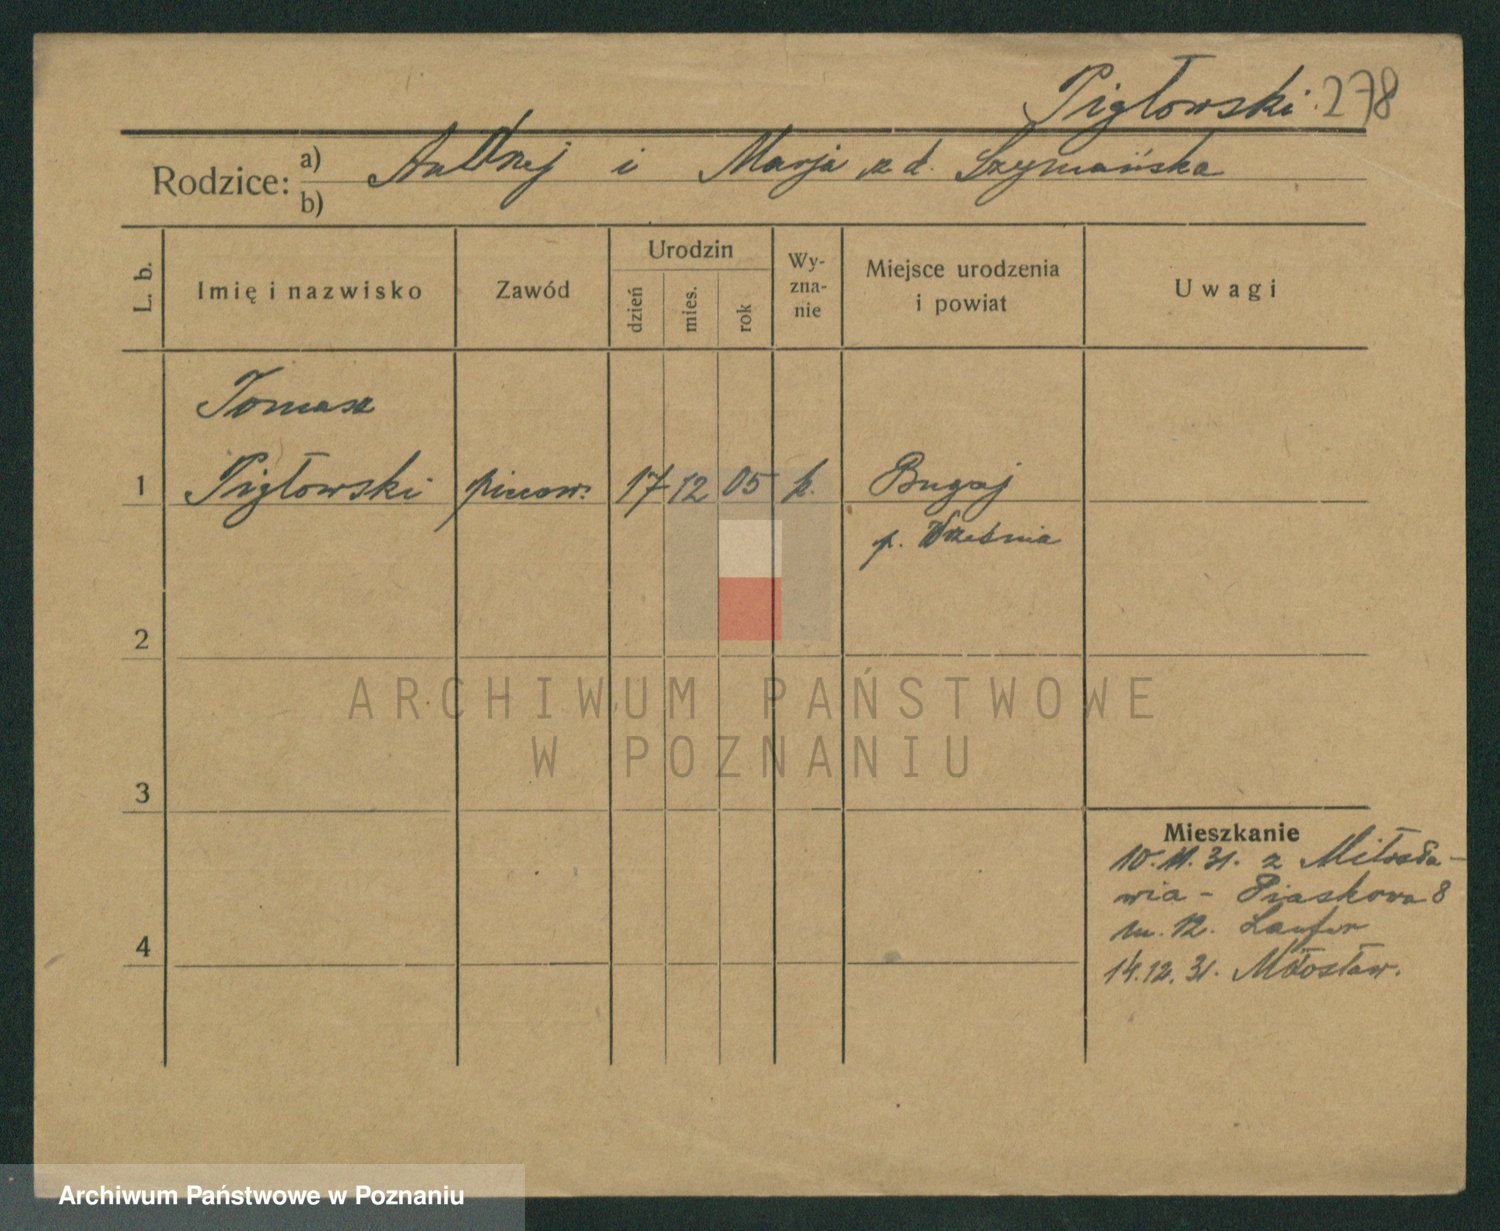 Pigłowski 278
Rodzice: a) Andrzej i Marja z d. Szymańska
b)
L. b.
Imię i nazwisko
Zawód
Urodzin
dzień
mies.
rok
Wy-
zna-
nie
Miejsce urodzenia
i powiat
Uwagi
Tomasz
1 Pigłowski piwow. 17 12 05 k. Bugaj
p. Września
2
3
4
Mieszkanie
10.11.31. z Miłosła-
wia - Piaskowa 8
m. 12. Laufer
14.12.31. Miłosław.
ARCHIWUM PAŃSTWOWE
W POZNANIU
Archiwum Państwowe w Poznaniu